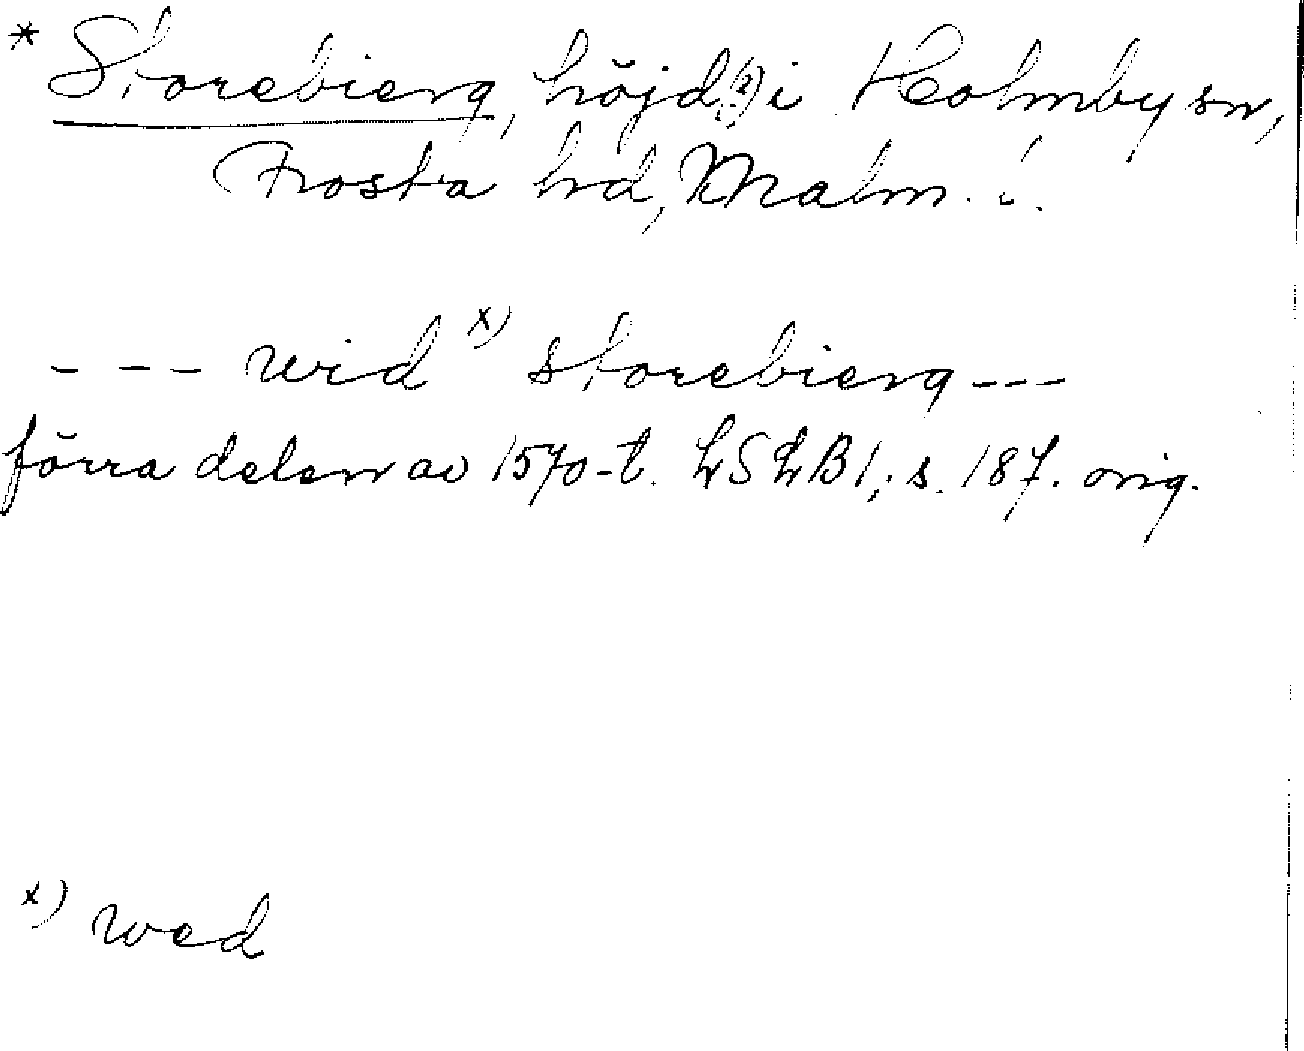 * Storebierg, höjd(?) i Holmby sn,
Frosta hd, Malm. l.
--- wid x) storebierg ---
förra delen av 1570-t. LSLB 1, s. 187. orig.
x) wed